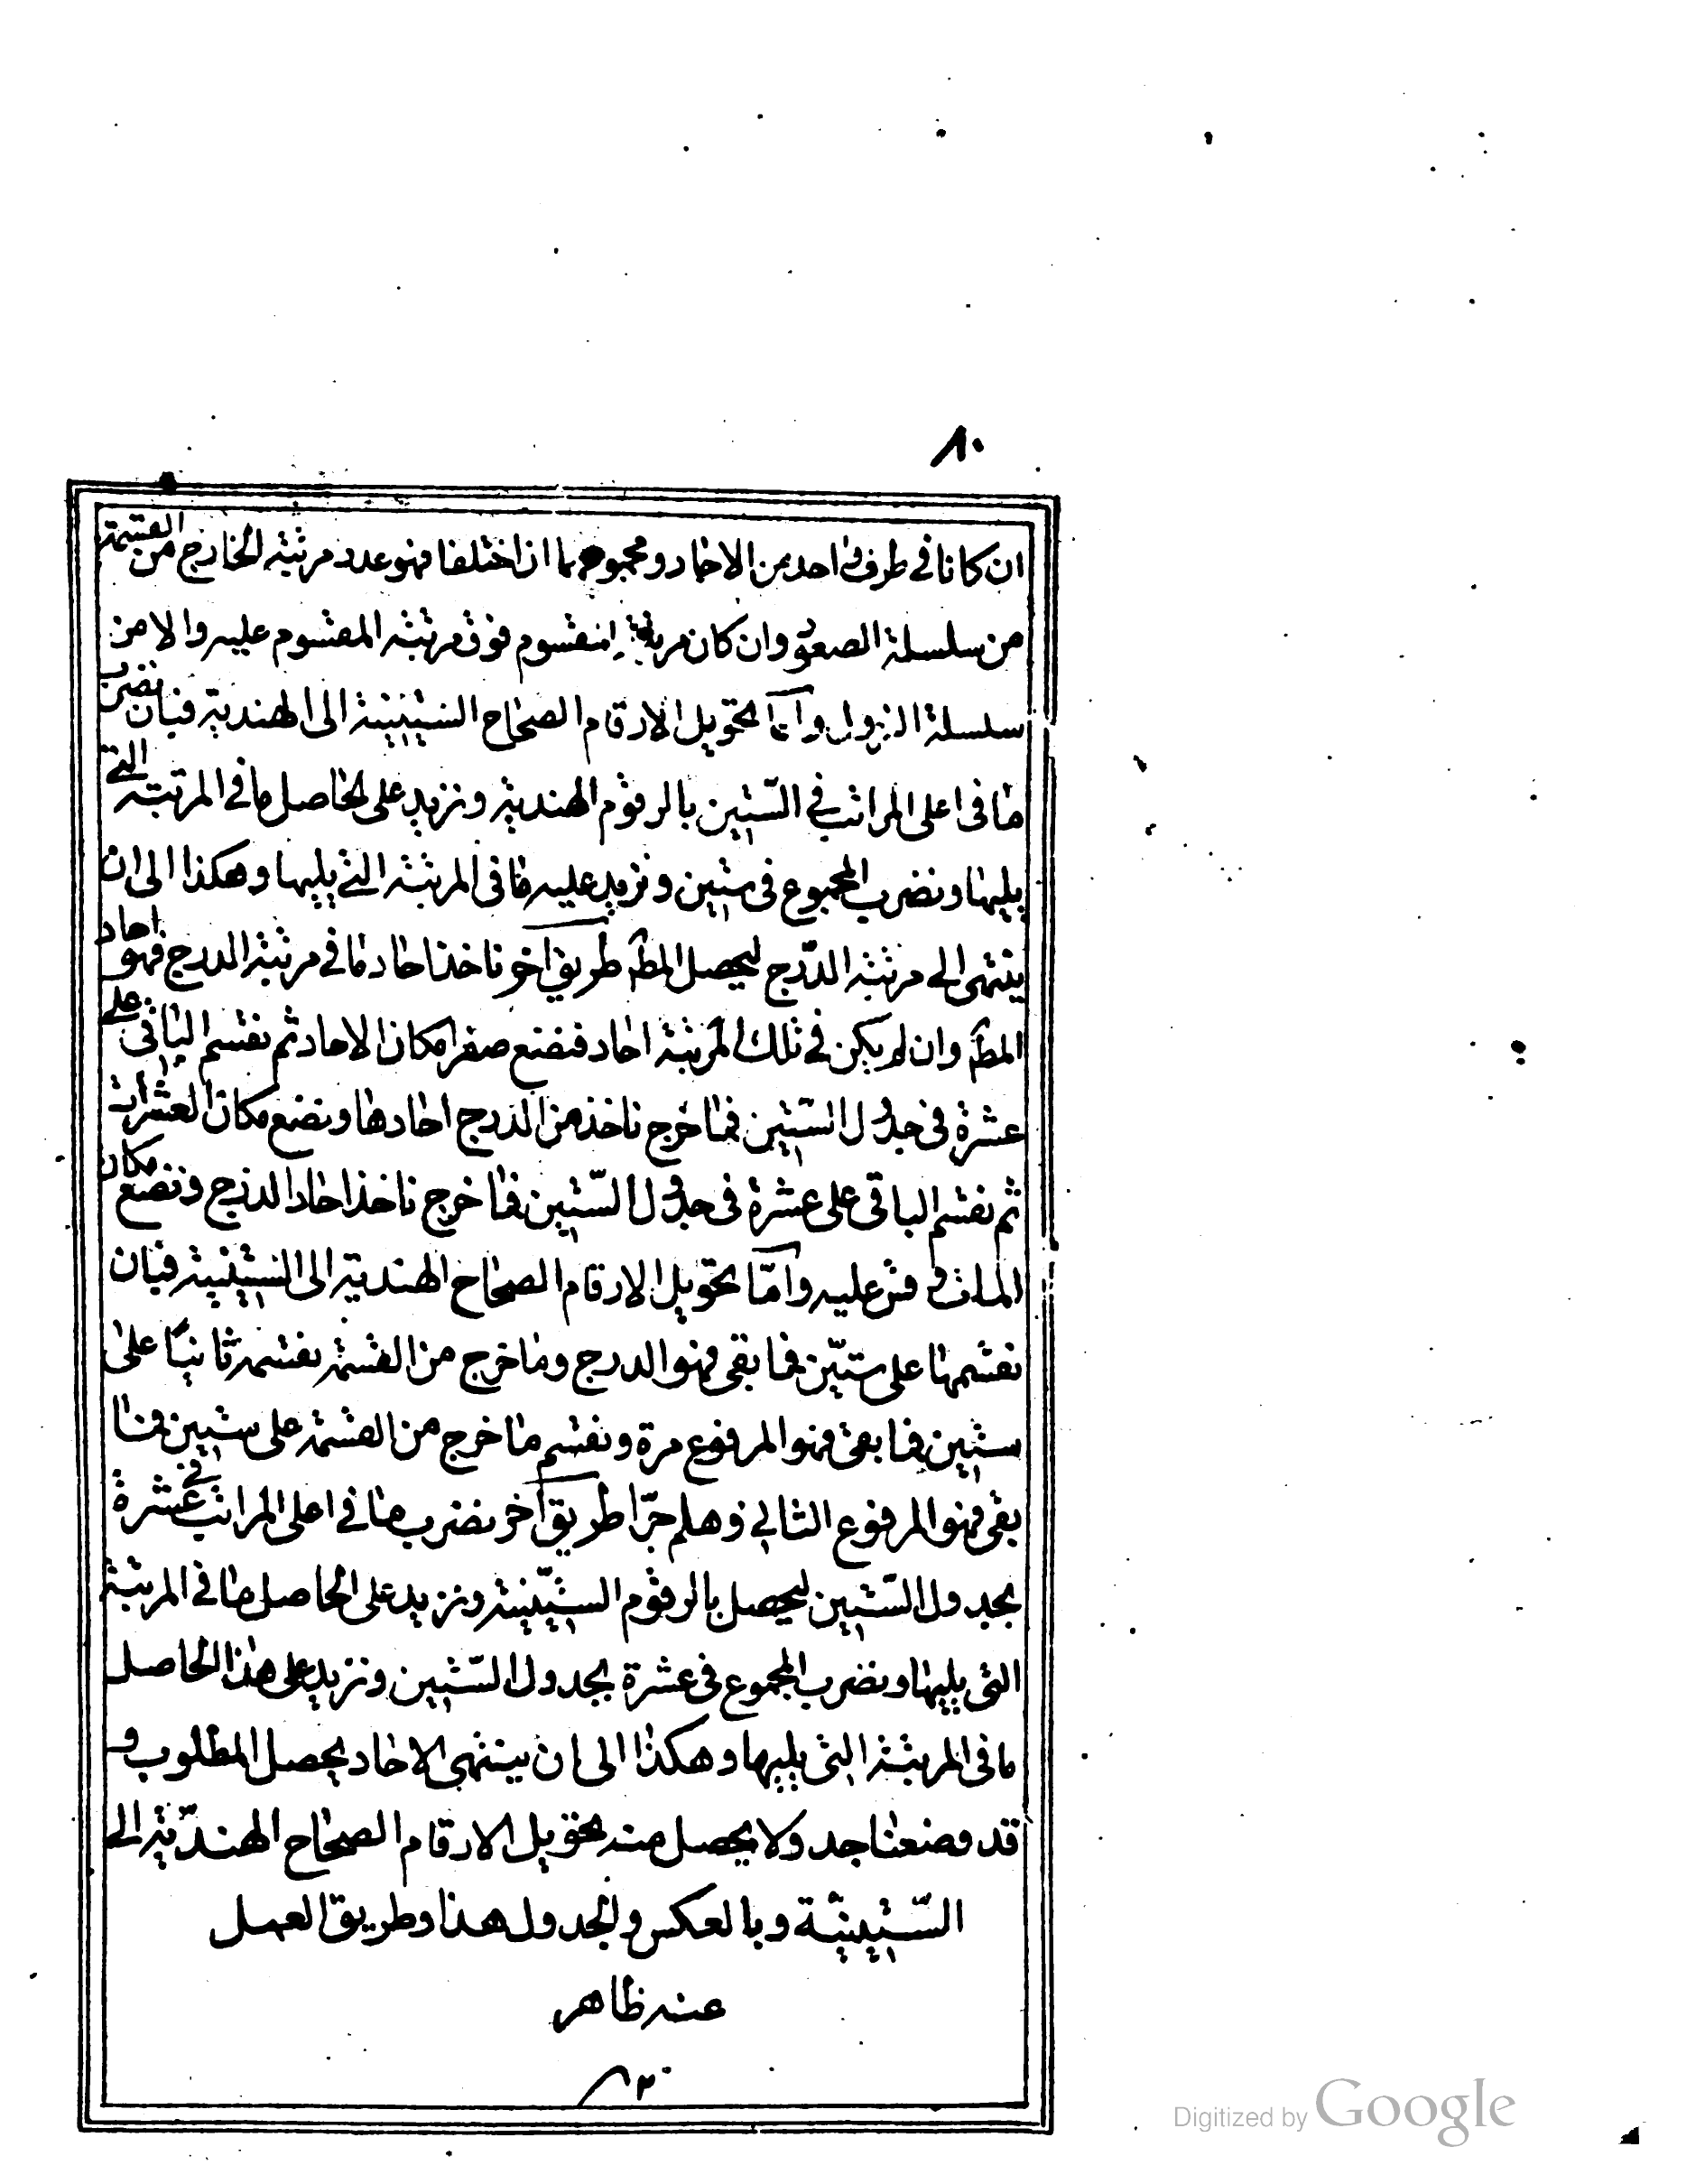 ٨٠
ان كانا في طرف واحد من الاحاد ومجموعهما ان اختلفا فهو عدد مرتبة الخارج من القسمة
من سلسلة الصعود وان كان مرتبة المقسوم فوق مرتبة المقسوم عليه والا من
سلسلة النزول وامّا تحويل الارقام الصحاح الستينية الى الهندية فبان نضرب
ما فى اعلى المراتب فى الستّين بالرقوم الهندية ونزيد على الحاصل ما فى المرتبة التى
يليها ونضرب المجموع فى ستين ونزيد عليه ما فى المرتبة التى يليها وهكذا الى ان
ينتهى الى مرتبة الدّرج ليحصل المط طريق آخر ناخذ احاد ما فى مرتبة الدرج فهو احاد
المط وان لم يكن فى تلك المرتبة احاد فنضع صفرا مكان الاحاد ثم نقسم الباقى على
عشرة فى جدول الستّين فما خرج ناخذ من الدرج احادها ونضع مكان العشرات
ثم نقسم الباقى على عشرة فى جدول الستّين فما خرج ناخذ احاد الدرج ونضع مكان
المات و قس عليه وامّا تحويل الارقام الصحاح الهندية الى الستينية فبان
نقسمها على ستّين فما بقى فهو الدرج وما خرج من القسمة نقسمه ثانيًا على
ستين فما بقى فهو المرفوع مرة ونقسم ما خرج من القسمة على ستين فما
بقى فهو المرفوع الثانى وهلم جرّا طريق آخر نضرب ما فى اعلى المراتب فى عشرة
بجدول الستّين ليحصل بالرقوم الستّينية ونزيد على الحاصل ما فى المرتبة
التى يليها ونضرب المجموع فى عشرة بجدول الستّين ونزيد على هذا الحاصل
ما فى المرتبة التى يليها وهكذا الى ان ينتهى الاحاد يحصل المطلوب و
قد وضعنا جدولا يحصل منه تحويل الارقام الصحاح الهنديّة الى
الستّينيّة وبالعكس والجدول هذا وطريق العمل
عنه ظاهر
Digitized by Google